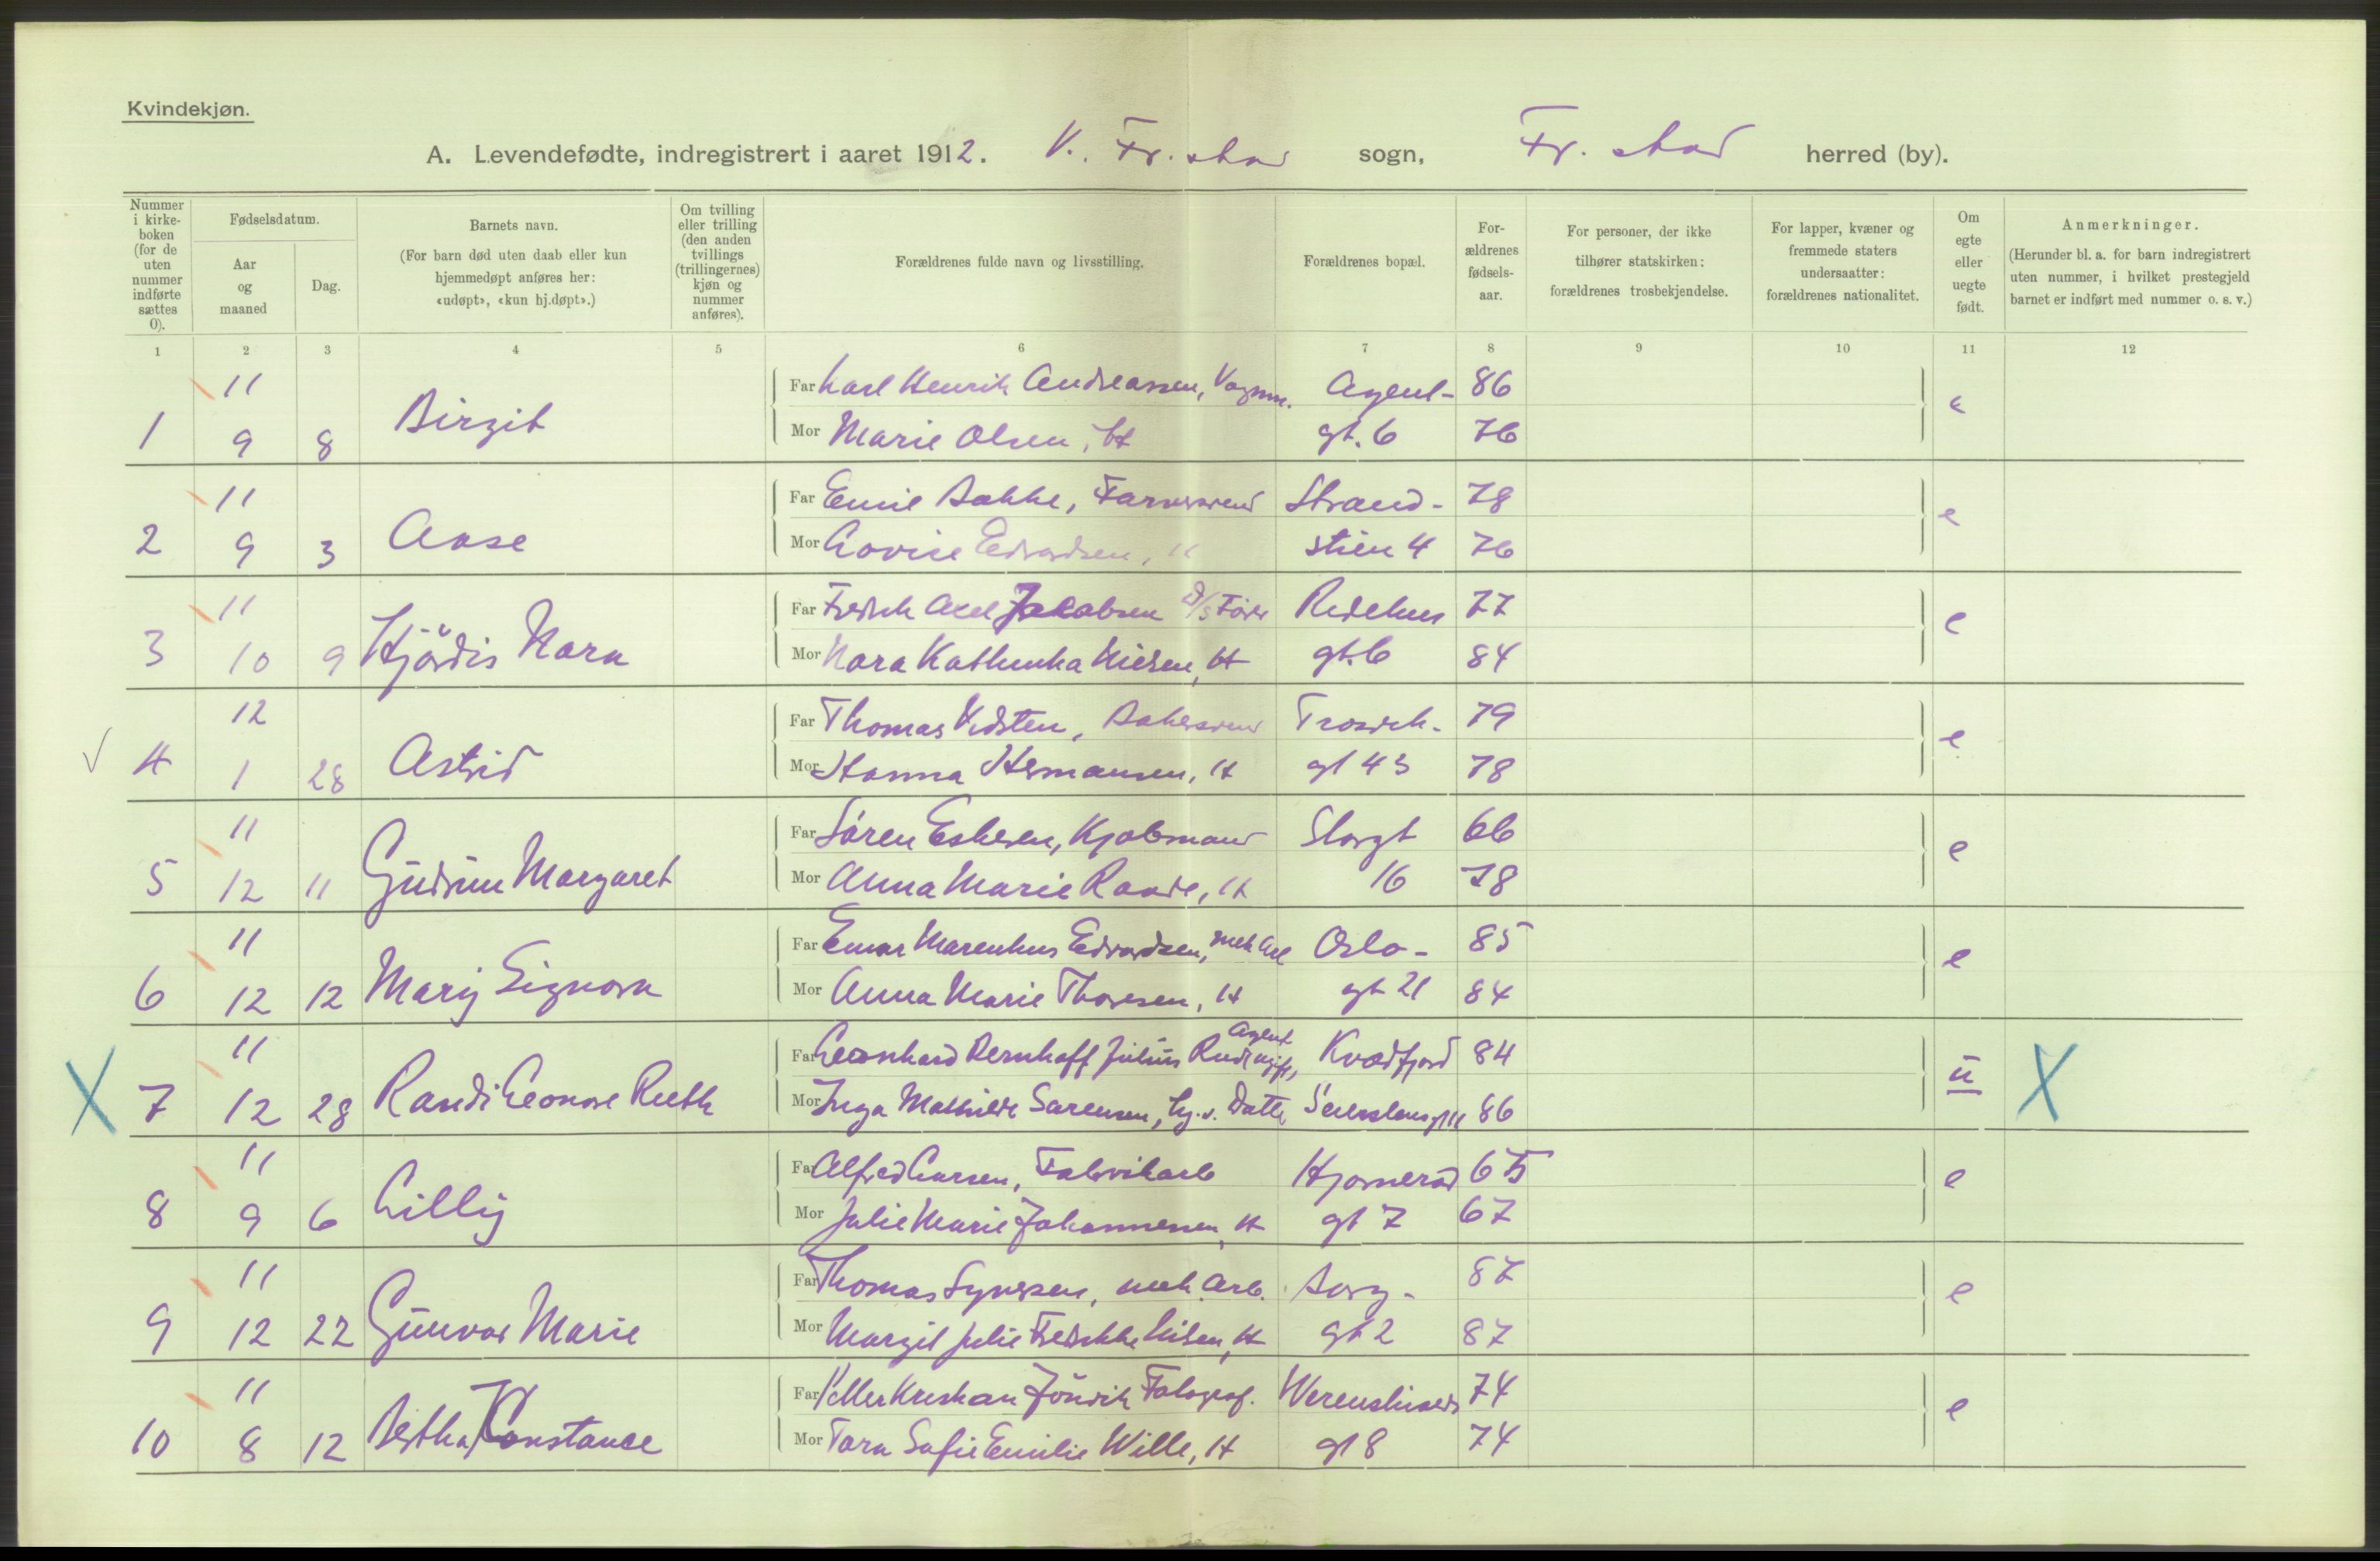 Kvindekjøn.
A. Levendefødte, indregistrert i aaret 1912. V. Fr.stad sogn, Fr.stad herred (by).
Nummer i kirke-boken (for de uten nummer indførte sættes 0).
Fødselsdatum.
Aar og maaned
Dag.
Barnets navn.
(For barn død uten daab eller kun hjemmedøpt anføres her: «udøpt», «kun hj.døpt».)
Om tvilling eller trilling (den anden tvillings (trillingernes) kjøn og nummer anføres).
Forældrenes fulde navn og livsstilling.
Forældrenes bopæl.
For-ældrenes fødsels-aar.
For personer, der ikke tilhører statskirken: forældrenes trosbekjendelse.
For lapper, kvæner og fremmede staters undersaatter: forældrenes nationalitet.
Om egte eller uegte født.
Anmerkninger.
(Herunder bl. a. for barn indregistrert uten nummer, i hvilket prestegjeld barnet er indført med nummer o. s. v.)
1 2 3 4 5 6 7 8 9 10 11 12
11 Far Karl Henrik Andreassen, Vognm. Agent- 86
1 9 8 Birgit Mor Marie Olsen, H gt. 6 76 e
11 Far Emil Bakke, Farversvend Strand- 78
2 9 3 Aase Mor Lovise Edvardsen, H stien 4 76 e
11 Far Fredrik Axel Jakobsen D/S Fører 77
3 10 9 Hjördis Nora Mor Nora Kathinka Nielsen, H gt. 6 84 e
12 Far Thomas Vedsten, Bakersvend Trosvik- 79
4 1 28 Astrid Mor Hanna Hermansen, H gt 43 78 e
11 Far Sören Eskesen, Kjøbmand Storgt 66
5 12 11 Gudrun Margaret Mor Anna Marie Raade, H 16 78 e
11 Far Einar Marenius Edvardsen, mek Arb Oslo- 85
6 12 12 Mary Signora Mor Anna Marie Thoresen, H gt 21 84 e
11 Far Leonhard Bernhoff Julius Rud, Agent, ugift, Kvædfjord 84
X 7 12 28 Randi Leonore Ruth Mor Inga Mathilde Sørensen, hj. v. Datter 86 u X
11 Far Alfred Larsen, Fabrikarb 65
8 9 6 Lilly Mor Julie Marie Johannessen, H gt 7 67 e
11 Far Thomas Syversen, mek. Arb. Borg- 87
9 12 22 Gunvor Marie Mor Margit Julie Fredrikke Nilsen, H gt 2 87 e
11 Far Petter Kristian Jündik Fotograf. Werenskiolds 74
10 8 12 Bertha Konstance Mor Tora Sofie Emilie Wille, H gt 8 74 e